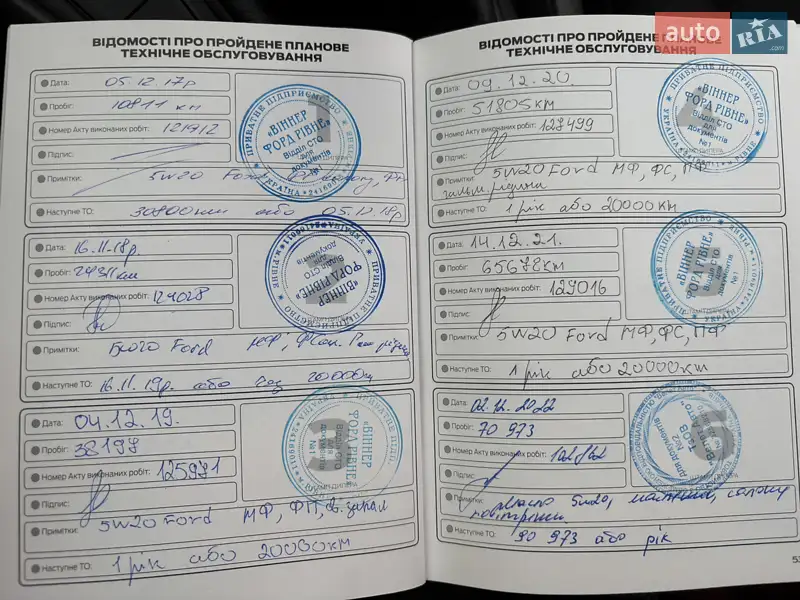 auto RIA.com
ВІДОМОСТІ ПРО ПРОЙДЕНЕ ПЛАНОВЕ
ТЕХНІЧНЕ ОБСЛУГОВУВАННЯ
Дата: 05.12.17р
Пробіг: 10811 км
Номер Акту виконаних робіт: 121912
Підпис:
Примітки: 5W20 Ford
Наступне ТО: 30800км або 05.12.18р
ПРИВАТНЕ ПІДПРИЄМСТВО УКРАЇНА
«ВІННЕР ФОРД РІВНЕ»
Відділ СТО для документів №1
Дата: 16.11.18р.
Пробіг: 24311км
Номер Акту виконаних робіт: 124028
Підпис:
Примітки: Ford
Наступне ТО: 16.11.19р. або 20000км
ПРИВАТНЕ ПІДПРИЄМСТВО УКРАЇНА
«ВІННЕР ФОРД РІВНЕ»
Відділ СТО для документів
Дата: 04.12.19.
Пробіг: 38197
Номер Акту виконаних робіт: 125971
Підпис:
Примітки: 5W20 Ford МФ, ФП,
Наступне ТО: 1 рік або 20000км
«ВІННЕР ФОРД РІВНЕ»
Відділ СТО для документів №1
ВІДОМОСТІ ПРО ПРОЙДЕНЕ ПЛАНОВЕ
ТЕХНІЧНЕ ОБСЛУГОВУВАННЯ
Дата: 09.12.20.
Пробіг: 51805км
Номер Акту виконаних робіт: 127499
Підпис:
Примітки: 5W20 Ford МФ, ФС, ПФ
гальм. рідина
Наступне ТО: 1 рік або 20000км
ПРИВАТНЕ ПІДПРИЄМСТВО УКРАЇНА РІВНЕ
«ВІННЕР ФОРД РІВНЕ»
Відділ СТО для документів №1
Дата: 14.12.21.
Пробіг: 65678км
Номер Акту виконаних робіт: 129016
Підпис:
Примітки: 5W20 Ford МФ, ФС, ПФ
Наступне ТО: 1 рік або 20000км
ПРИВАТНЕ ПІДПРИЄМСТВО УКРАЇНА
«ВІННЕР ФОРД РІВНЕ»
Відділ СТО для документів №1
Дата: 02.12.2022
Пробіг: 70 973
Номер Акту виконаних робіт:
Підпис:
Примітки: 5w20, масляний, салону
повітряний.
Наступне ТО: 90 973 або рік
ТОВ для документів №2
53